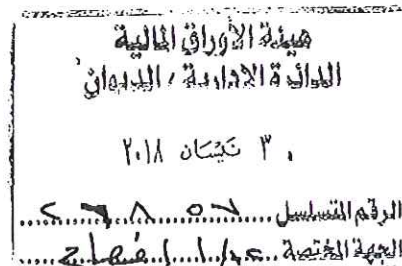 هيئة الأوراق المالية
الدائرة الادارية / الديوان
٣٠ نيسان ٢٠١٨
الرقم المتسلسل
الجهة المختصة افصاح